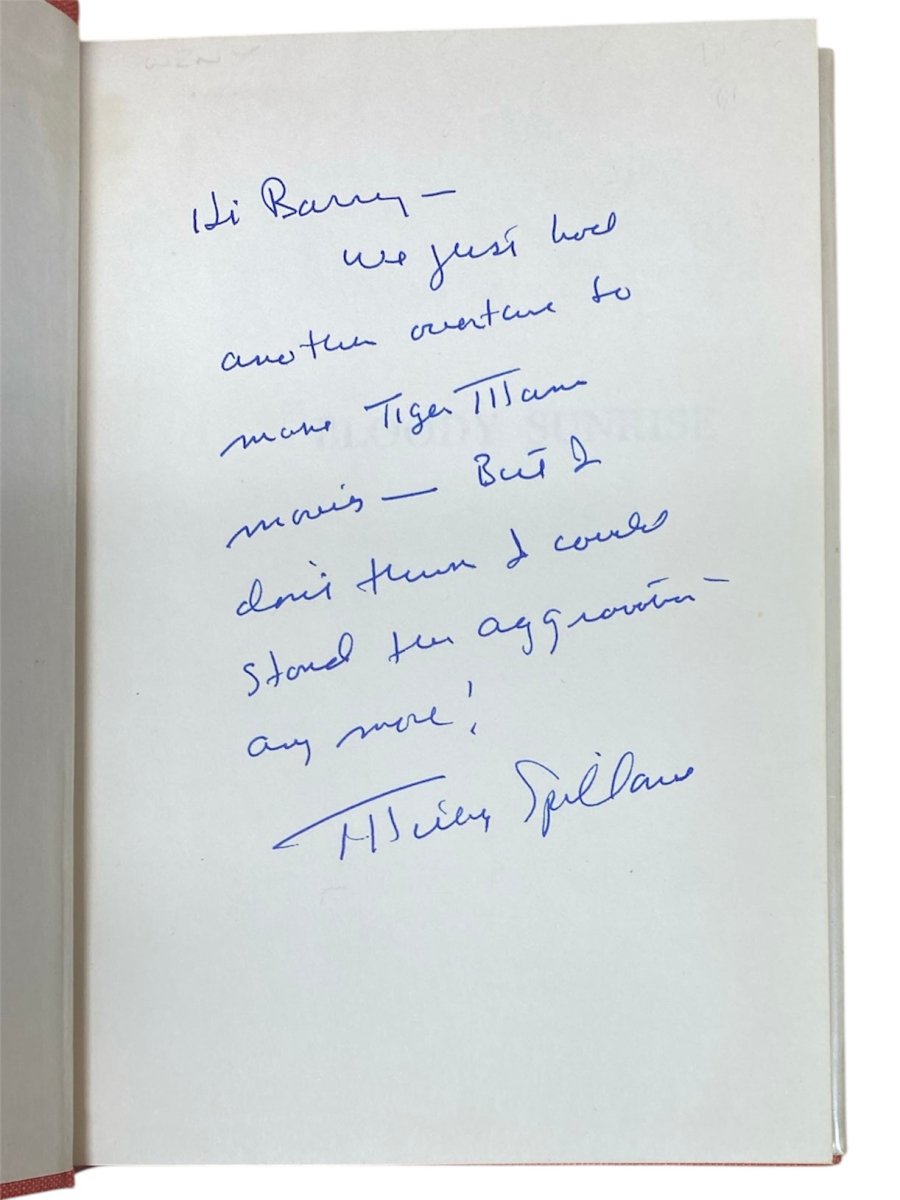 Hi Barney —
we just had
another overture to
make Tiger Mann
movies — But I
don't think I could
stand the aggravation
any more!
Mickey Spillane
BLOODY SUNRISE